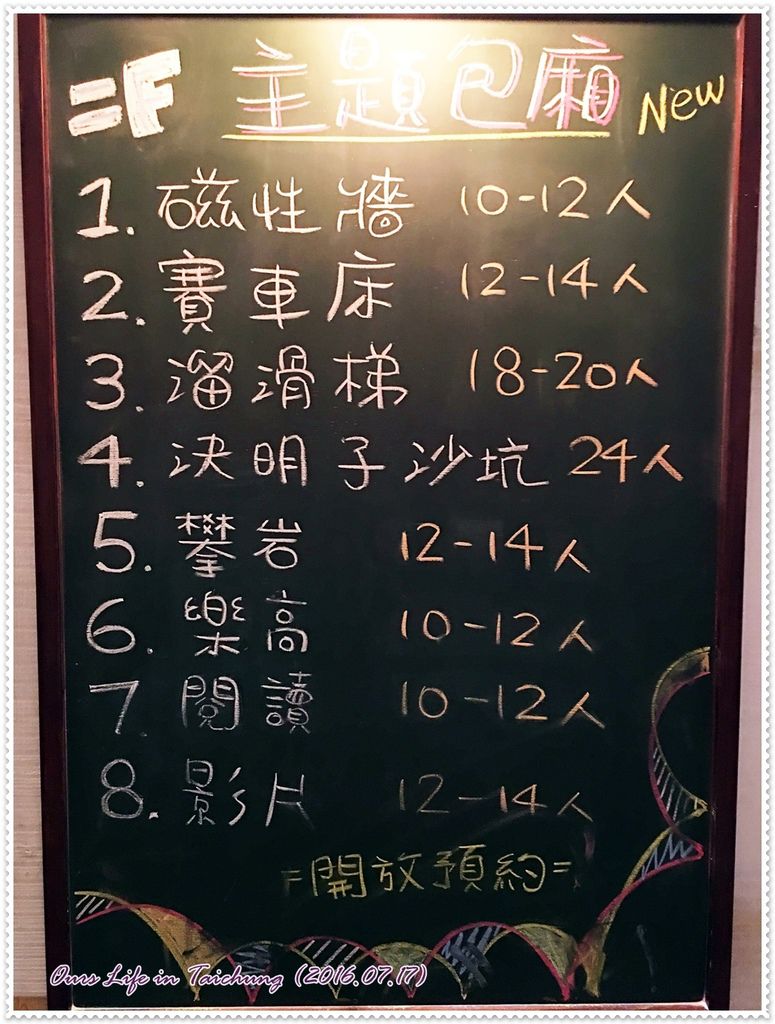 =F 主題包廂 New
1. 磁性牆 10-12人
2. 賽車床 12-14人
3. 溜滑梯 18-20人
4. 決明子沙坑 24人
5. 攀岩 12-14人
6. 樂高 10-12人
7. 閱讀 10-12人
8. 影片 12-14人
=開放預約=
Ours Life in Taichung (2016.07.17)